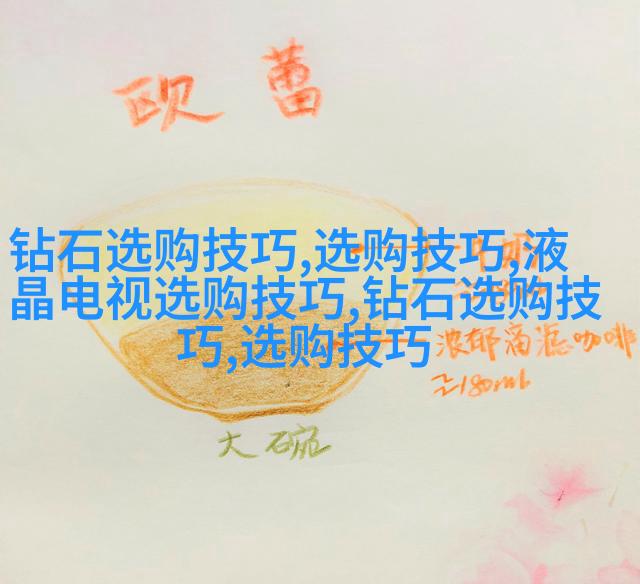 欧蕾
钻石选购技巧,选购技巧,液
晶电视选购技巧,钻石选购技
巧,选购技巧
浓郁滴滤咖啡
≈180ml
大碗